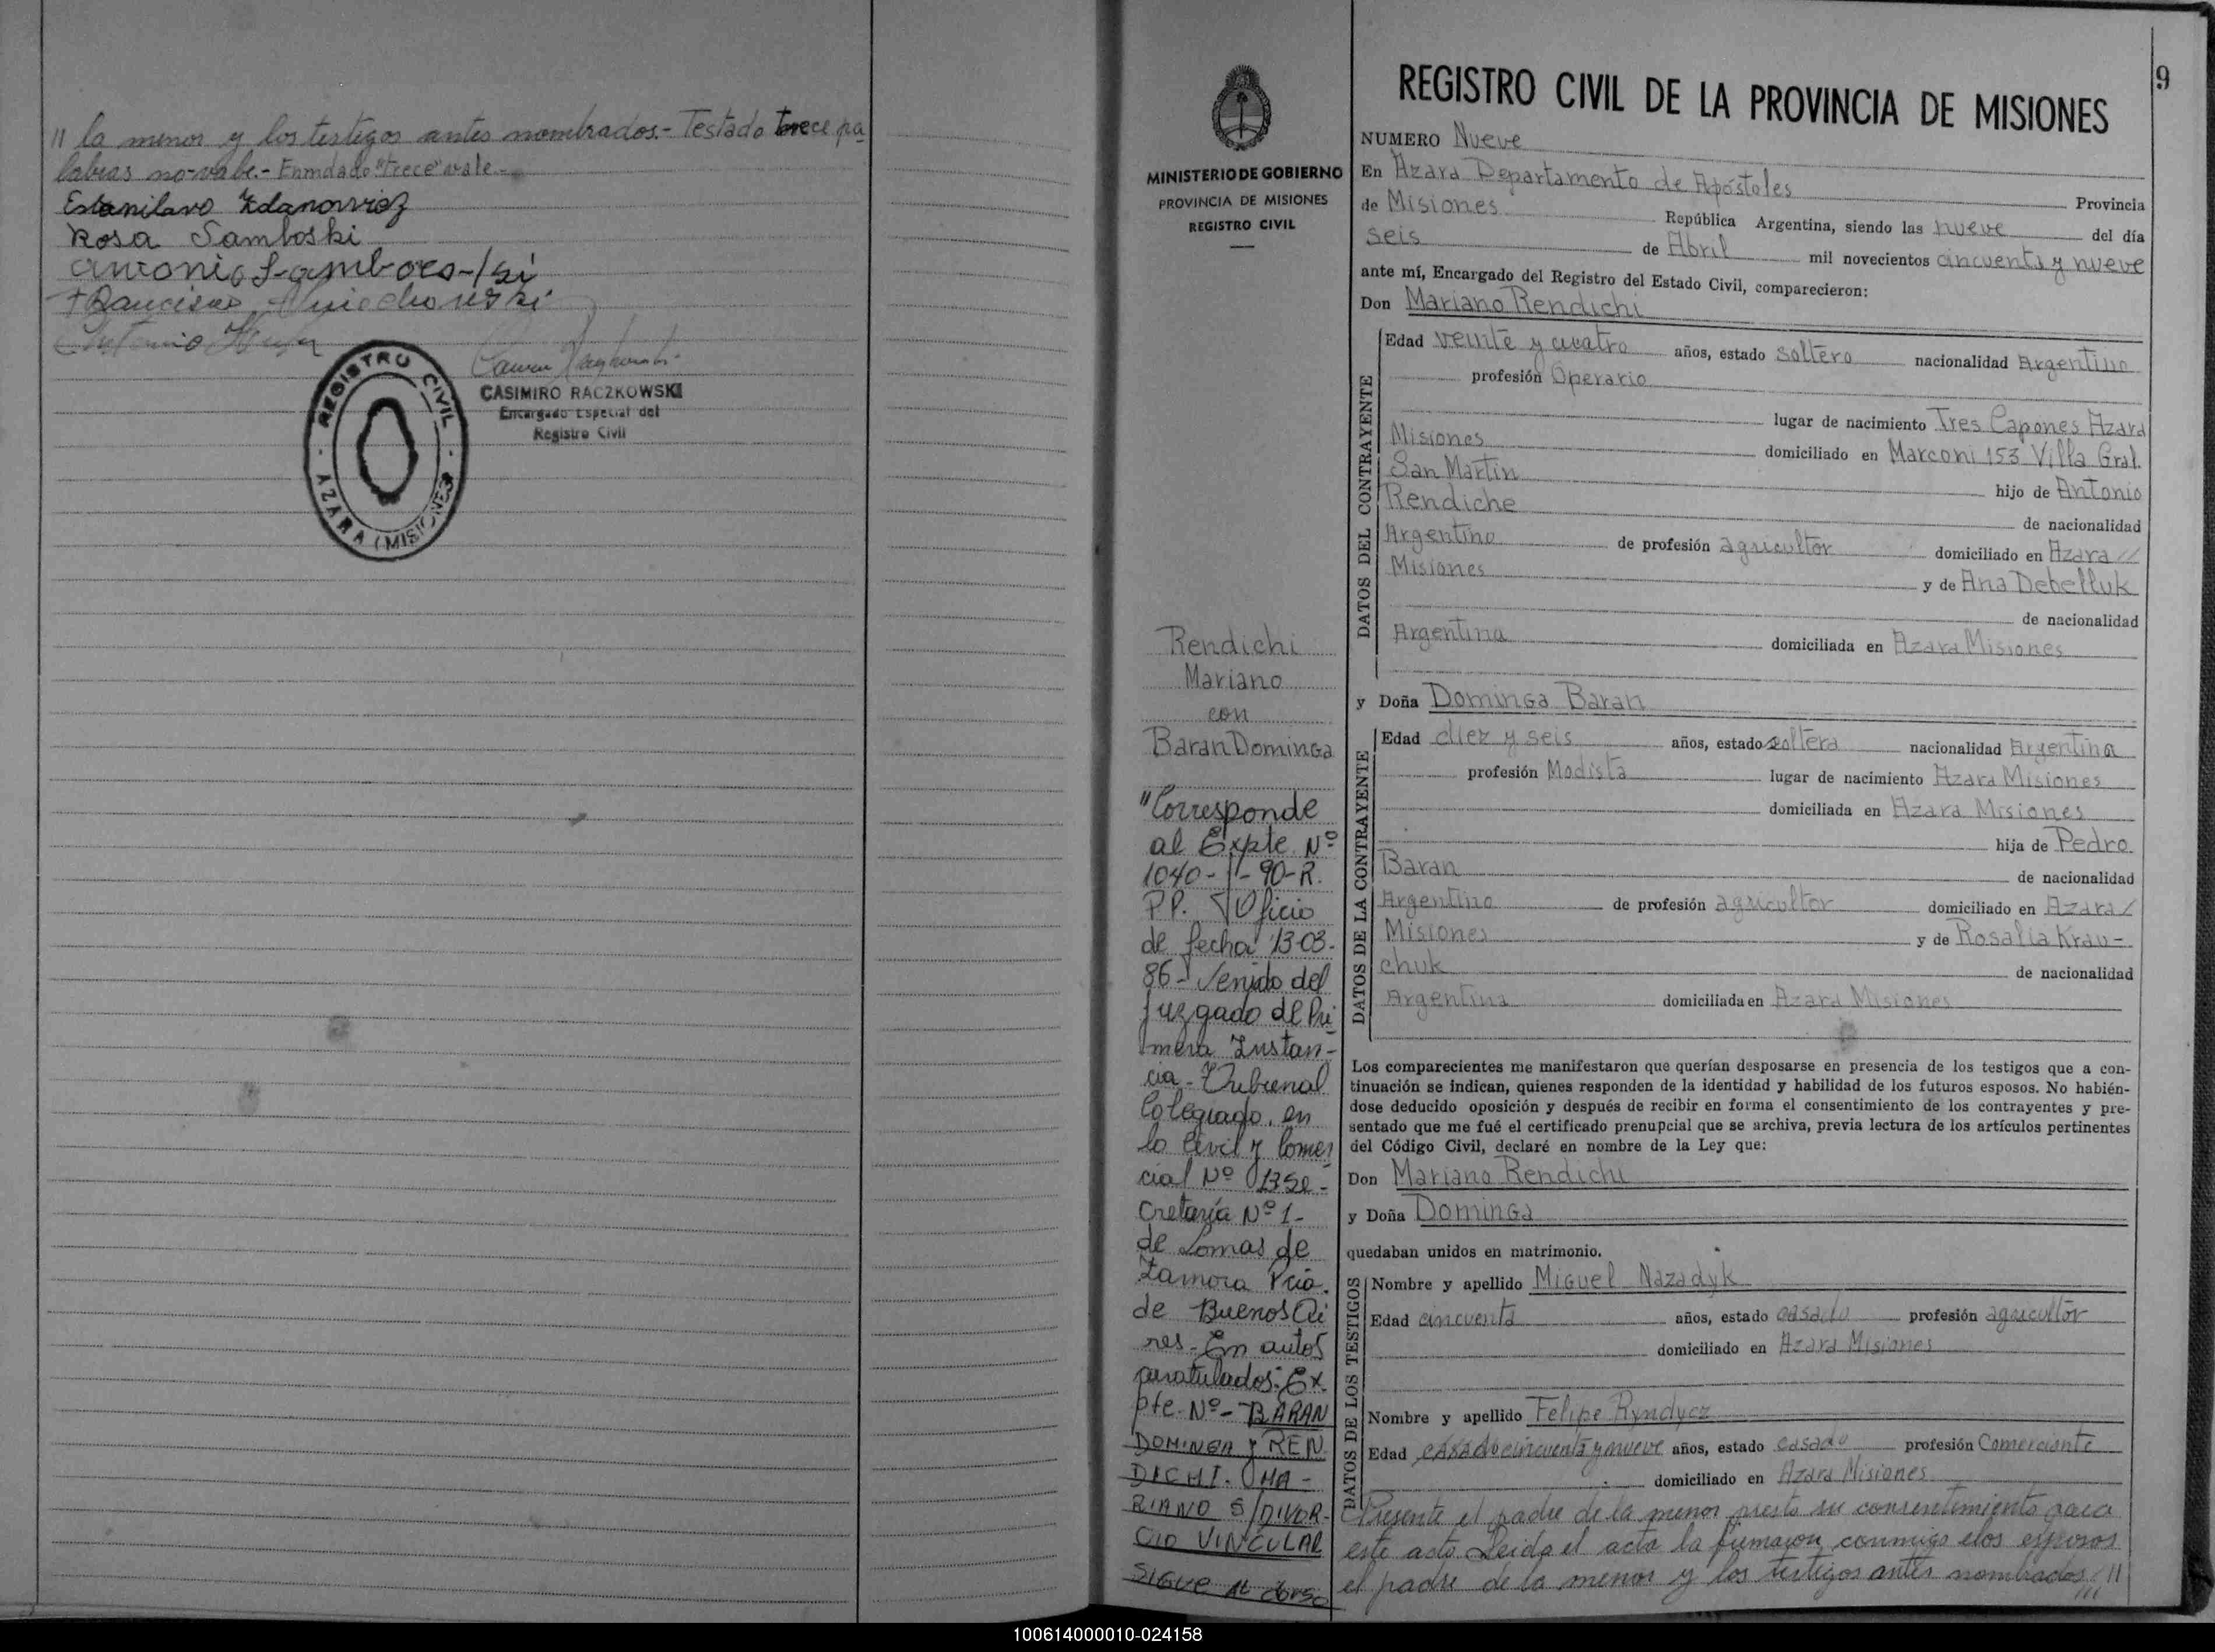 // la menor y los testigos antes nombrados.- Testado trece pa
labras no vale.- Enmdado "trece" vale.-
Estanilavo Zdanowicz
Rosa Samboski
Antonio
CASIMIRO RACZKOWSKI
Encargado Especial del
Registro Civil
REGISTRO CIVIL
AZARA (MISIONES)
MINISTERIO DE GOBIERNO
PROVINCIA DE MISIONES
REGISTRO CIVIL
Rendichi
Mariano
con
Baran Dominga
"Corresponde
al Expte Nº
1040- -90-R.
P.P. Oficio
de fecha 13-03-
86- Venido del
Juzgado de Pri
mera Instan-
cia- Tribunal
Colegiado, en
lo Civil y Comer
cial Nº 13 Se-
cretaría Nº 1-
de Lomas de
Zamora Pcia.
de Buenos Ai
res- En autos
caratulados: Ex.
pte. Nº- BARAN
DOMINGA y REN
DICHI. MA-
RIANO S/DIVOR-
CIO VINCULAR
SIGUE AL dorso
9
REGISTRO CIVIL DE LA PROVINCIA DE MISIONES
NUMERO Nueve
En Azara Departamento de Apóstoles Provincia
de Misiones República Argentina, siendo las nueve del día
seis de Abril mil novecientos cincuenta y nueve
ante mí, Encargado del Registro del Estado Civil, comparecieron:
Don Mariano Rendichi
DATOS DEL CONTRAYENTE
Edad veinte y cuatro años, estado soltero nacionalidad Argentino
profesión Operario
lugar de nacimiento Tres Capones Azara
Misiones domiciliado en Marconi 153 Villa Gral.
San Martin hijo de Antonio
Rendiche de nacionalidad
Argentino de profesión agricultor domiciliado en Azara //
Misiones y de Ana Debelluk
de nacionalidad
Argentina domiciliada en Azara Misiones
y Doña Dominga Baran
DATOS DE LA CONTRAYENTE
Edad diez y seis años, estado soltera nacionalidad Argentina
profesión Modista lugar de nacimiento Azara Misiones
domiciliada en Azara Misiones
hija de Pedro
Baran de nacionalidad
Argentino de profesión agricultor domiciliado en Azara/
Misiones y de Rosalia Krau-
chuk de nacionalidad
Argentina domiciliada en Azara Misiones
Los comparecientes me manifestaron que querían desposarse en presencia de los testigos que a con-
tinuación se indican, quienes responden de la identidad y habilidad de los futuros esposos. No habién-
dose deducido oposición y después de recibir en forma el consentimiento de los contrayentes y pre-
sentado que me fué el certificado prenupcial que se archiva, previa lectura de los artículos pertinentes
del Código Civil, declaré en nombre de la Ley que:
Don Mariano Rendichi
y Doña Dominga
quedaban unidos en matrimonio.
DATOS DE LOS TESTIGOS
Nombre y apellido Miguel Nazadyk
Edad cincuenta años, estado casado profesión agricultor
domiciliado en Azara Misiones
Nombre y apellido Felipe Ryndycz
Edad casado cincuenta y nueve años, estado casado profesión Comerciante
domiciliado en Azara Misiones
Presente el padre de la menor presta su consentimiento para
este acto. Leida el acta la firmaron conmigo elos esposos
el padre de la menor y los testigos antes nombrados ///
100614000010-024158